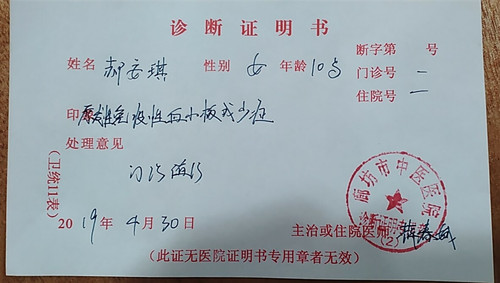 诊断证明书
断字第 号
姓名 郝安琪 性别 女 年龄 10岁 门诊号 一
住院号 一
印 原发性免疫性血小板减少症
处理意见
门诊随诊
(卫统11表)
2019年 4月30日
廊坊市中医医院
诊断证明
(2)
主治或住院医师
(此证无医院证明书专用章者无效)